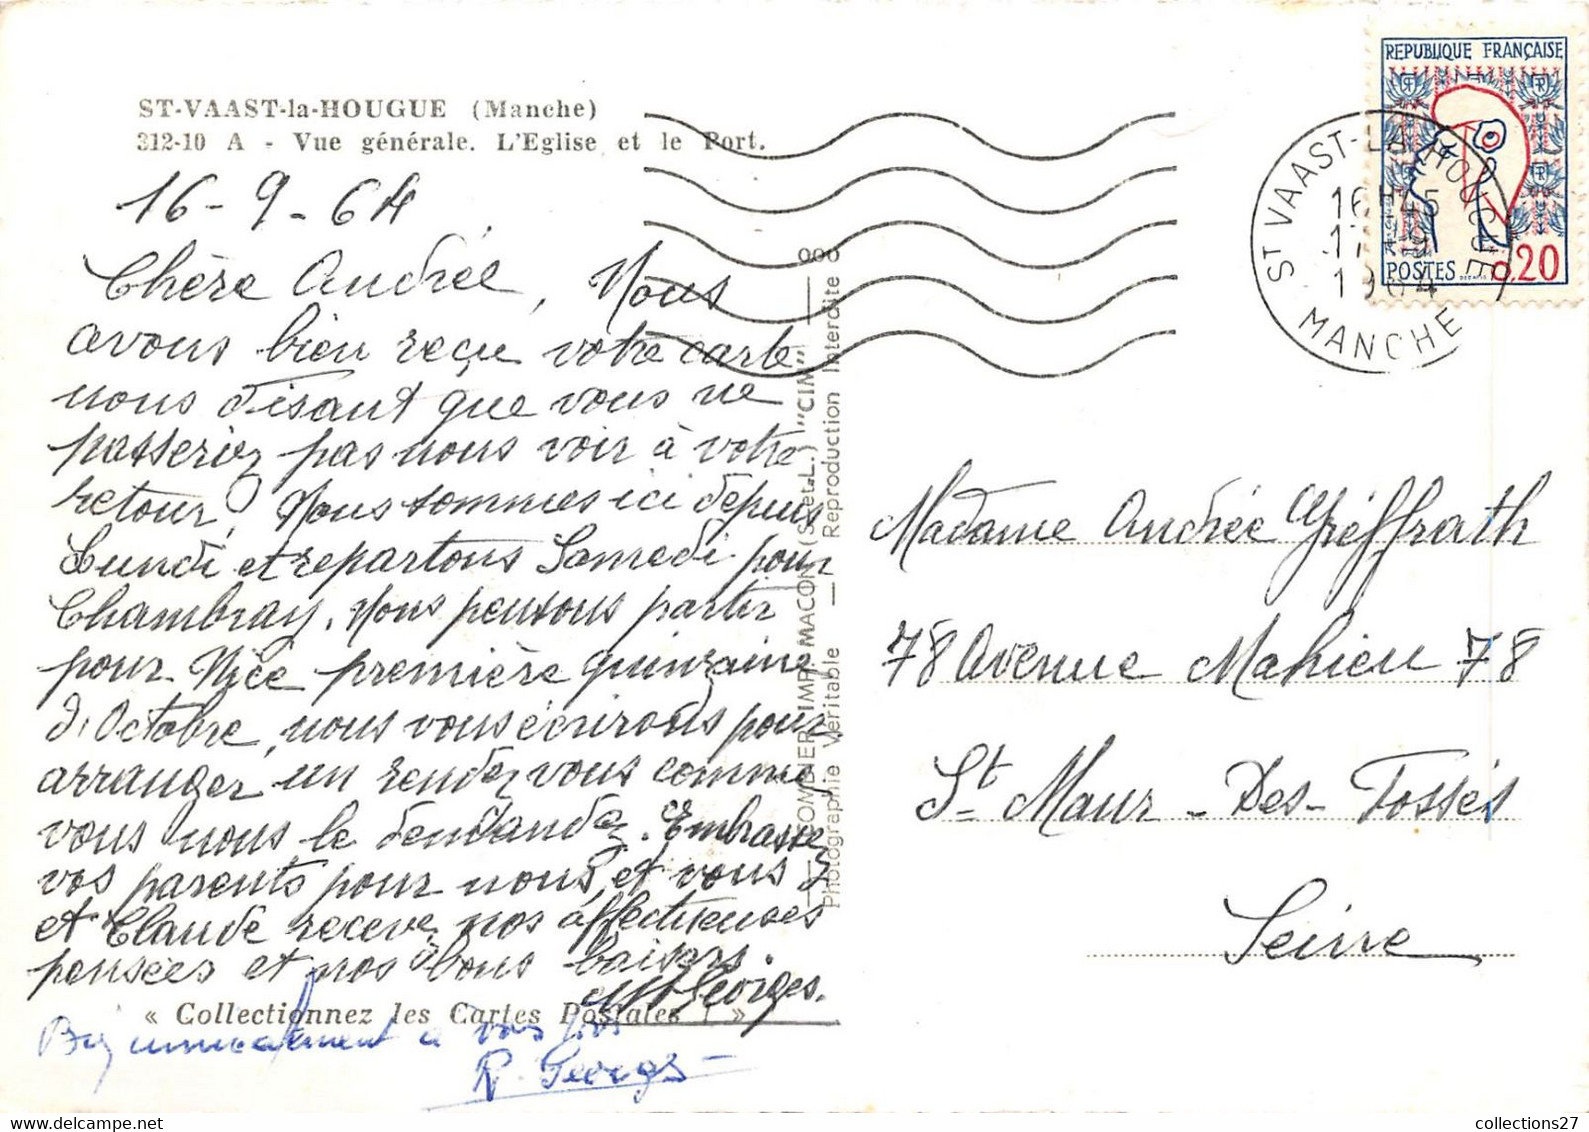 ST-VAAST-la-HOUGUE (Manche)
312-10 A - Vue générale. L'Eglise et le Port.
16-9-64
Chère Andrée, Nous
avons bien reçu votre carte
nous disant que vous ne
passeriez pas nous voir à votre
retour! Nous sommes ici depuis
Lundi et repartons Samedi pour
Chambray. Nous pensons partir
pour Nice première quinzaine
d'Octobre, nous vous écrirons pour
arranger un rendez vous comme
vous nous le demandez. Embrassez
vos parents pour nous, et vous
et Claude recevez nos affectueuses
pensées et nos bons baisers.
Georges.
« Collectionnez les Cartes Postales ! »
à vous
R. Georges
COMBIER IMP. MACON (S.-et-L.) "CIM"
Photographie Véritable — Reproduction Interdite
REPUBLIQUE FRANÇAISE
POSTES 0,20
ST VAAST-LA-HOUGUE
16H45
17-9
1964
MANCHE
Madame Andrée Gréffrath
78 Avenue Mahieu 78
St Maur-Des-Fossés
Seine
collections27